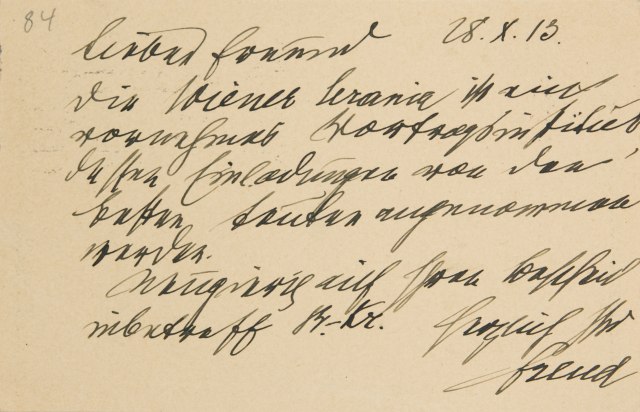 84
28. X. 13.
Lieber Freund
Die Wiener Urania ist ein
vornehmes Vortragsinstitut
dessen Einladungen von den
besten Leuten angenommen
werden.
Neugierig auf Ihren Bescheid
inbetreff
herzlich Ihr
Freud